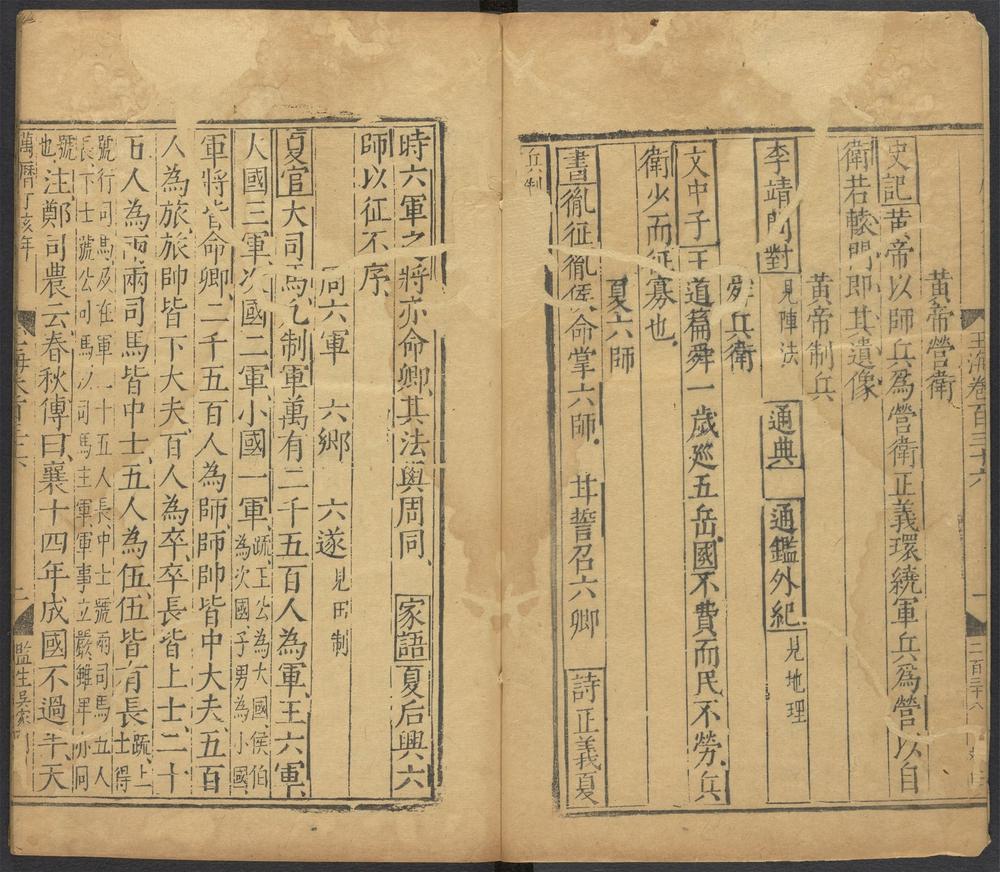 玉海卷百三十六
一
二百三十八
黃帝營衛
史記黃帝以師兵爲營衛正義環繞軍兵爲營以自
衛若轅門即其遺像
黃帝制兵
李靖問對見陣法 通典 通鑑外紀見地理
舜兵衛
文中子王道篇舜一歲廵五岳國不費而民不勞兵
衛少而征寡也
夏六師
書胤征胤侯命掌六師 甘誓召六卿 詩正義夏
兵制
時六軍之將亦命卿其法與周同 家語夏后興六
師以征不序
周六軍 六鄉 六遂見田制
夏官大司馬凡制軍萬有二千五百人為軍王六軍
大國三軍次國二軍小國一軍疏王公為大國侯伯
為次國子男為小國
軍將皆命卿二千五百人為師師帥皆中大夫五百
人為旅旅帥皆下大夫百人為卒卒長皆上士二十
五人為兩兩司馬皆中士五人為伍伍皆有長疏上
士得
號行司馬及在軍二十五人長中士號兩司馬五人
長下士號公司馬 司馬主軍軍事立嚴雖卑亦同
號
也注鄭司農云春秋傳曰襄十四年成國不過半天
萬曆丁亥年
玉海卷百三十六
二
監生吳